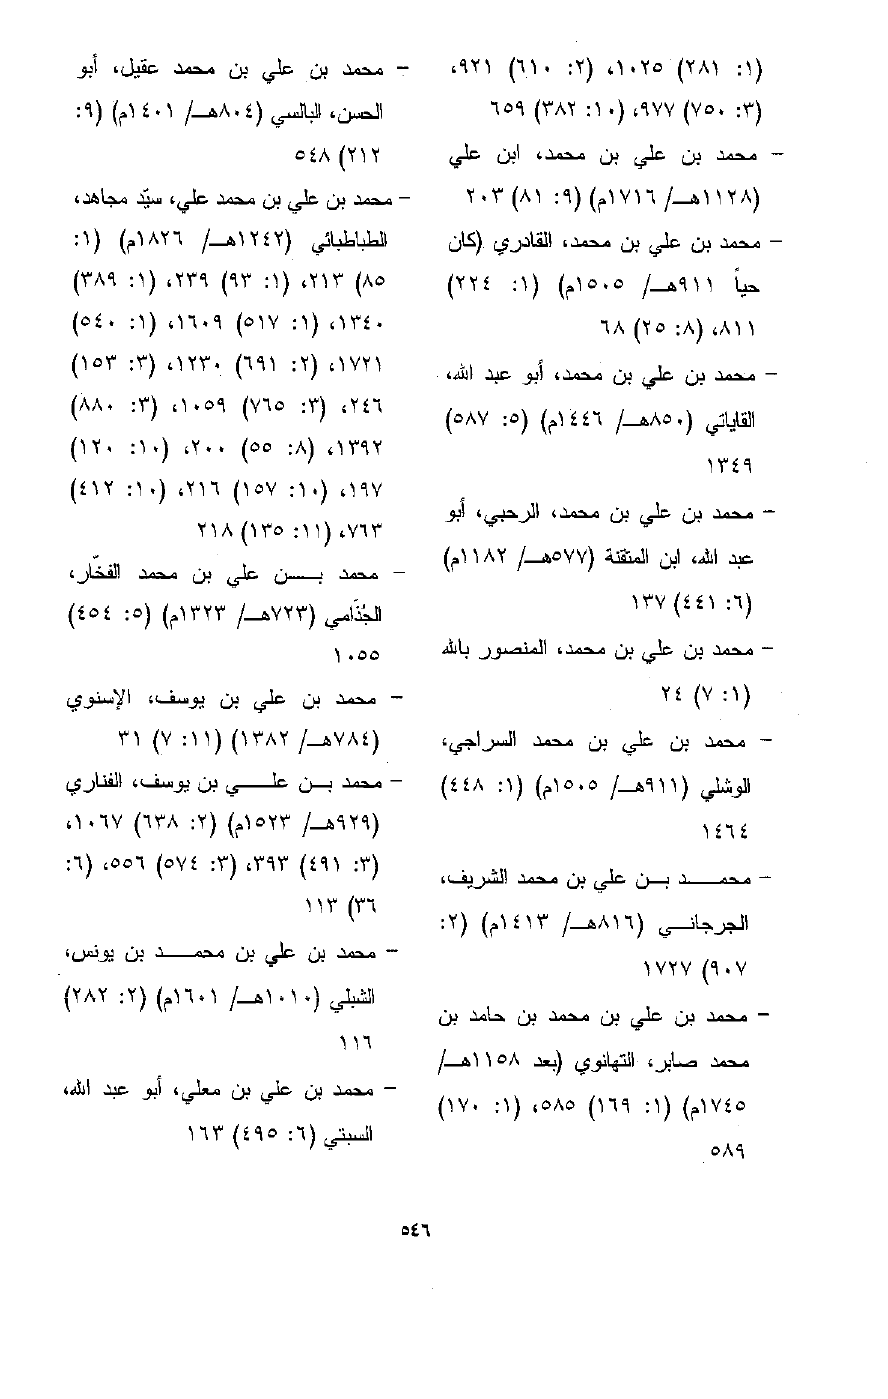 (١: ٢٨١) ١٠٢٥، (٢: ٦١٠) ٩٢١،
(٣: ٧٥٠) ٩٧٧، (١٠: ٣٨٢) ٦٥٩
- محمد بن علي بن محمد، ابن علي
(١١٢٨هـ/ ١٧١٦م) (٩: ٨١) ٢٠٣
- محمد بن علي بن محمد، القادري (كان
حياً ٩١١هـ/ ١٥٠٥م) (١: ٢٢٤)
٨١١، (٨: ٢٥) ٦٨
- محمد بن علي بن محمد، أبو عبد الله،
القاياتي (٨٥٠هـ/ ١٤٤٦م) (٥: ٥٨٧)
١٣٤٩
- محمد بن علي بن محمد، الرحبي، أبو
عبد الله، ابن المتقنة (٥٧٧هـ/ ١١٨٢م)
(٦: ٤٤١) ١٣٧
- محمد بن علي بن محمد، المنصور بالله
(١: ٧) ٢٤
- محمد بن علي بن محمد السراجي،
الوشلي (٩١١هـ/ ١٥٠٥م) (١: ٤٤٨)
١٤٦٤
- محمد بن علي بن محمد الشريف،
الجرجاني (٨١٦هـ/ ١٤١٣م) (٢:
٩٠٧) ١٧٢٧
- محمد بن علي بن محمد بن حامد بن
محمد صابر، التهانوي (بعد ١١٥٨هـ/
١٧٤٥م) (١: ١٦٩) ٥٨٥، (١: ١٧٠)
٥٨٩
- محمد بن علي بن محمد عقيل، أبو
الحسن، البالسي (٨٠٤هـ/ ١٤٠١م) (٩:
٢١٢) ٥٤٨
- محمد بن علي بن محمد علي، سيّد مجاهد،
الطباطبائي (١٢٤٢هـ/ ١٨٢٦م) (١:
٨٥) ٢١٣، (١: ٩٣) ٢٣٩، (١: ٣٨٩)
١٣٤٠، (١: ٥١٧) ١٦٠٩، (١: ٥٤٠)
١٧٢١، (٢: ٦٩١) ١٢٣٠، (٣: ١٥٣)
٢٤٦، (٣: ٧٦٥) ١٠٥٩، (٣: ٨٨٠)
١٣٩٢، (٨: ٥٥) ٢٠٠، (١٠: ١٢٠)
١٩٧، (١٠: ١٥٧) ٢١٦، (١٠: ٤١٢)
٧٦٣، (١١: ١٣٥) ٢١٨
- محمد بن علي بن محمد الفخّار،
الجُذَامي (٧٢٣هـ/ ١٣٢٣م) (٥: ٤٥٤)
١٠٥٥
- محمد بن علي بن يوسف، الإسنوي
(٧٨٤هـ/ ١٣٨٢) (١١: ٧) ٣١
- محمد بن علي بن يوسف، الفناري
(٩٢٩هـ/ ١٥٢٣م) (٢: ٦٣٨) ١٠٦٧،
(٣: ٤٩١) ٣٩٣، (٣: ٥٧٤) ٥٥٦، (٦:
٣٦) ١١٣
- محمد بن علي بن محمد بن يونس،
الشبلي (١٠١٠هـ/ ١٦٠١م) (٢: ٢٨٢)
١١٦
- محمد بن علي بن معلي، أبو عبد الله،
السبتي (٦: ٤٩٥) ١٦٣
٥٤٦